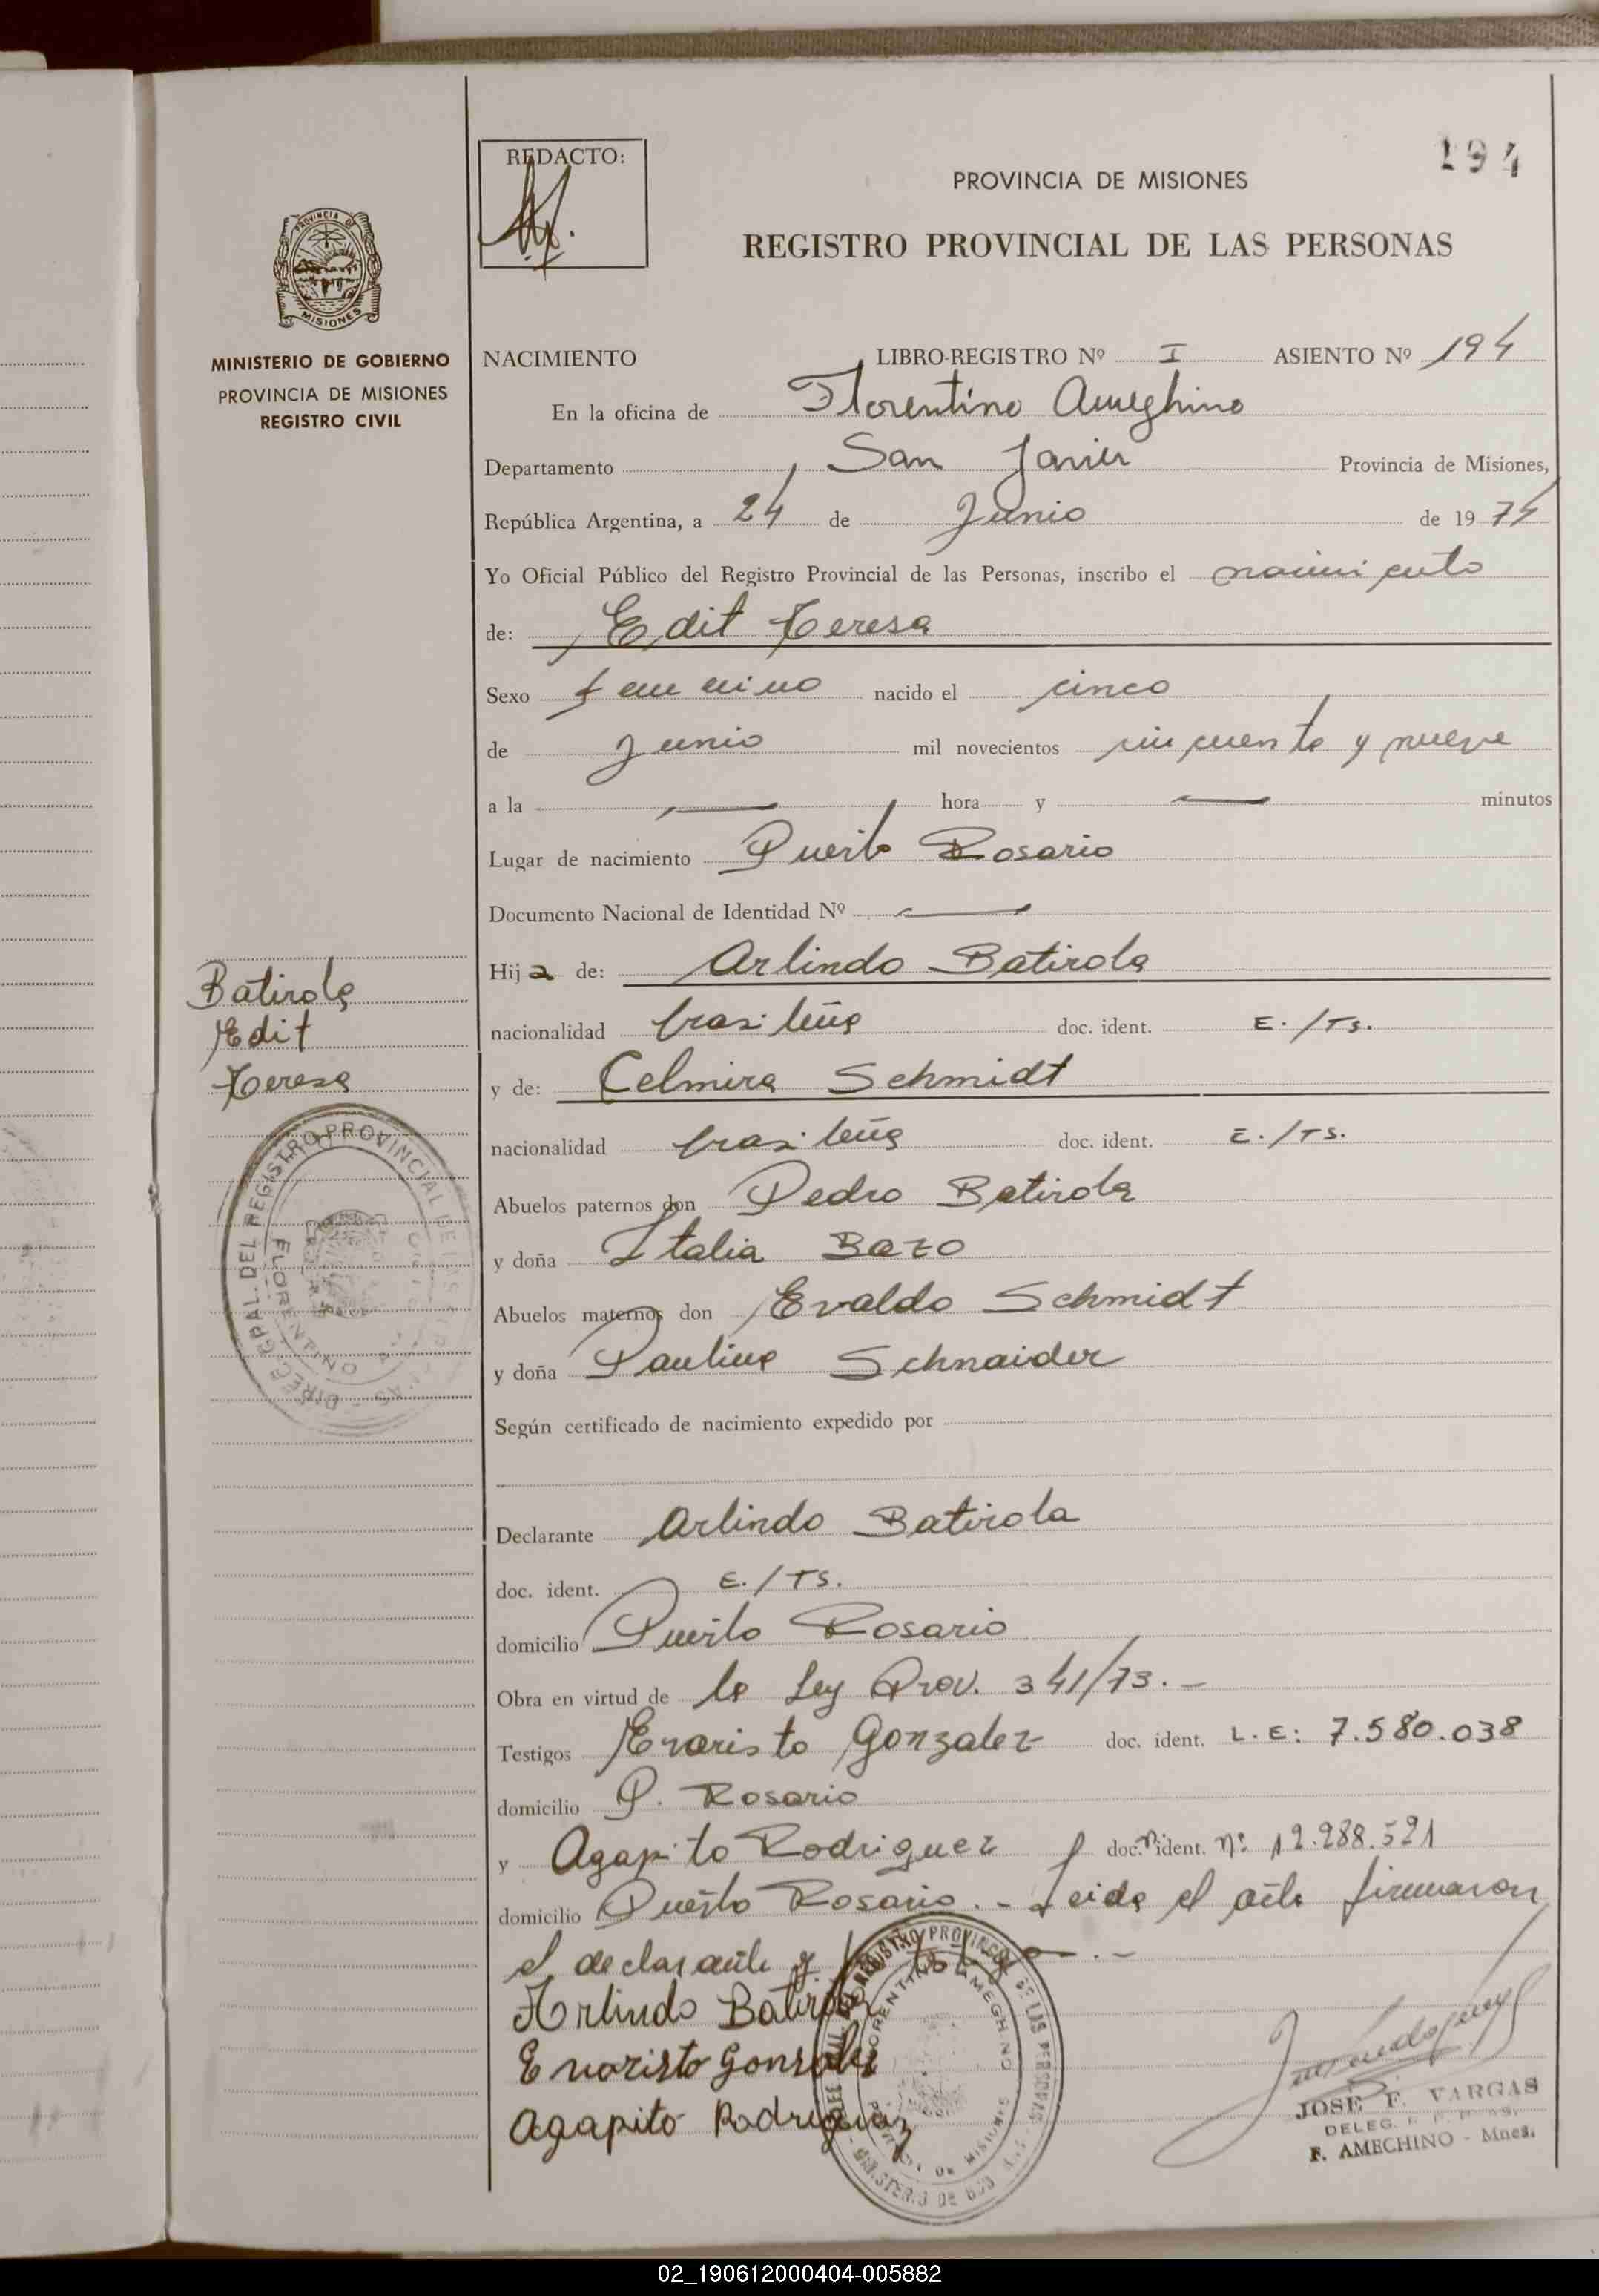 194
REDACTO:
PROVINCIA DE MISIONES
REGISTRO PROVINCIAL DE LAS PERSONAS
PROVINCIA DE
MISIONES
MINISTERIO DE GOBIERNO
PROVINCIA DE MISIONES
REGISTRO CIVIL
NACIMIENTO LIBRO-REGISTRO Nº I ASIENTO Nº 194
En la oficina de Florentino Ameghino
Departamento San Javier Provincia de Misiones,
República Argentina, a 24 de Junio de 1974
Yo Oficial Público del Registro Provincial de las Personas, inscribo el nacimiento
de: Edit Teresa
Sexo femenino nacido el cinco
de Junio mil novecientos cincuenta y nueve
a la — hora y — minutos
Lugar de nacimiento Puerto Rosario
Documento Nacional de Identidad Nº —
Hija de: Arlindo Batirola
Batirola
Edit
Teresa
nacionalidad brasileña doc. ident. E./Ts.
y de: Celmira Schmidt
nacionalidad brasileña doc. ident. E./TS.
Abuelos paternos don Pedro Batirola
y doña Italia Bazo
Abuelos maternos don Evaldo Schmidt
y doña Paulina Schnaider
Según certificado de nacimiento expedido por
Declarante Arlindo Batirola
doc. ident. E./TS.
domicilio Puerto Rosario
Obra en virtud de la Ley Prov. 341/73.-
Testigos Evaristo Gonzalez doc. ident. L.E: 7.580.038
domicilio P. Rosario
y Agapito Rodriguez doc. ident. Nº 12.288.521
domicilio Puerto Rosario.- Leida el acta firmaron
el declarante y
Arlindo Batirola
Evaristo Gonsalez
Agapito Rodriguez
JOSE F. VARGAS
DELEG.
F. AMECHINO - Mnes.
02_190612000404-005882